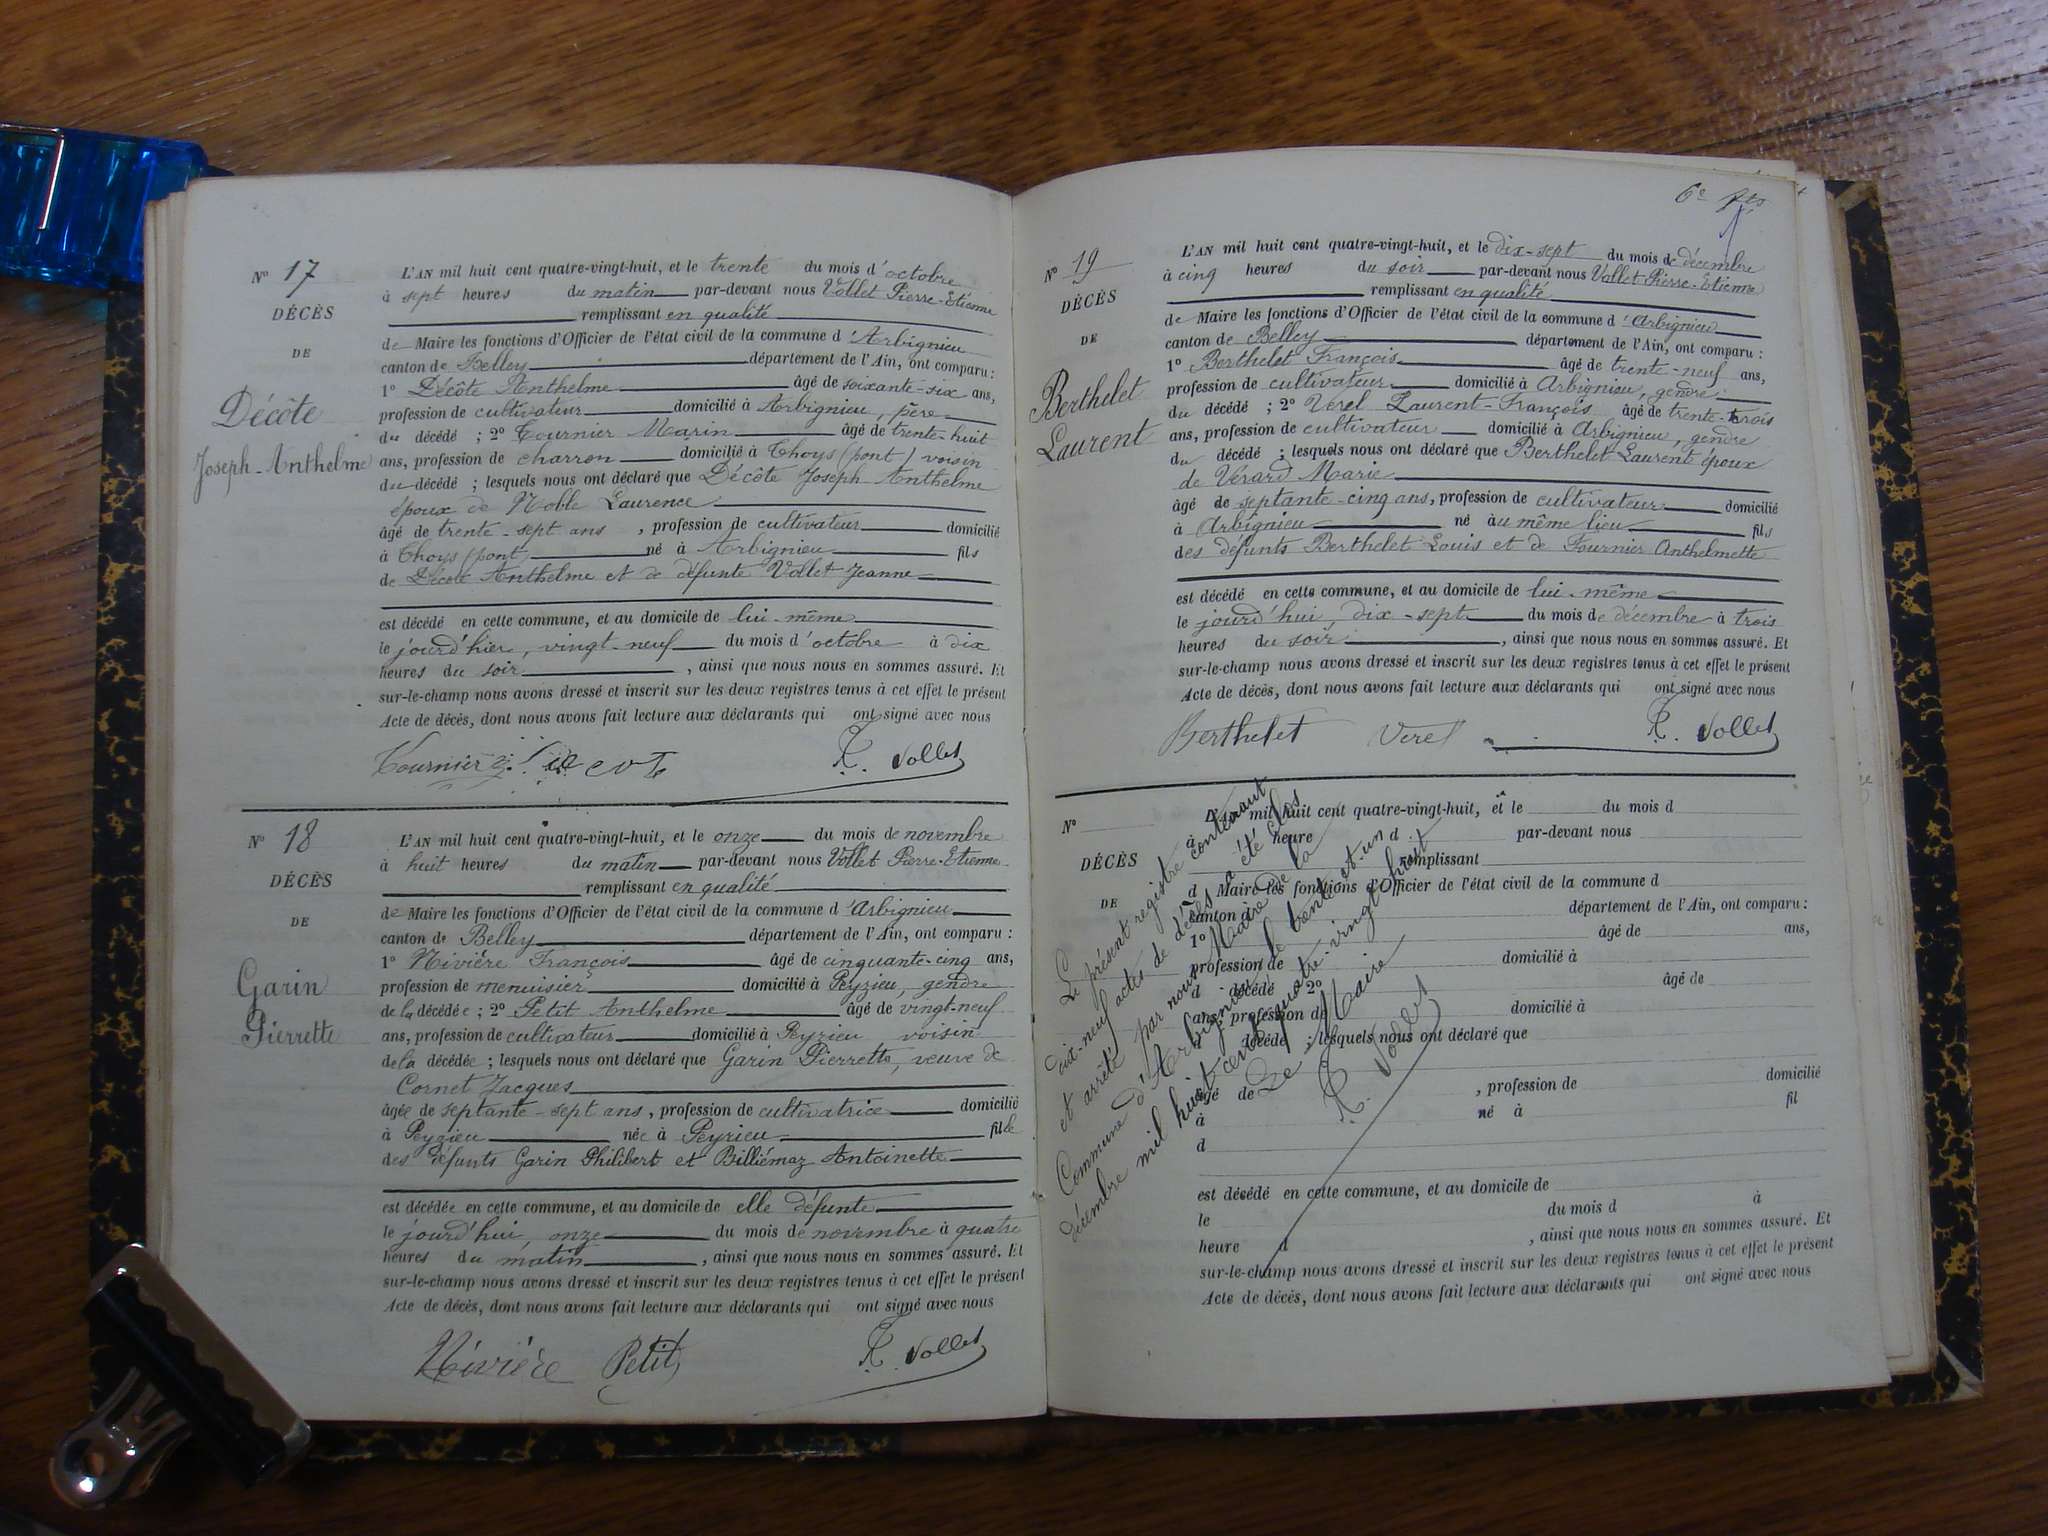 Nº 17
DÉCÈS
DE
Décôte
Joseph-Anthelme
L'AN mil huit cent quatre-vingt-huit, et le trente du mois d'octobre
à sept heures du matin par-devant nous Vollet Pierre-Etienne
remplissant en qualité
de Maire les fonctions d'Officier de l'état civil de la commune d'Arbignieu
canton de Belley département de l'Ain, ont comparu :
1º Décôte Anthelme âgé de soixante-six ans,
profession de cultivateur domicilié à Arbignieu, père
du décédé ; 2º Tournier Marin âgé de trente-huit
ans, profession de charron domicilié à Thoys (pont) voisin
du décédé ; lesquels nous ont déclaré que Décôte Joseph-Anthelme
époux de Noble Laurence
âgé de trente-sept ans, profession de cultivateur domicilié
à Thoys (pont) né à Arbignieu fils
de Décote Anthelme et de défunte Vollet Jeanne
est décédé en cette commune, et au domicile de lui-même
le jourd'hier, vingt-neuf du mois d'octobre à dix
heures du soir, ainsi que nous nous en sommes assuré. Et
sur-le-champ nous avons dressé et inscrit sur les deux registres tenus à cet effet le présent
Acte de décès, dont nous avons fait lecture aux déclarants qui ont signé avec nous
Tournier E. Vollet
Nº 18
DÉCÈS
DE
Garin
Pierrette
L'AN mil huit cent quatre-vingt-huit, et le onze du mois de novembre
à huit heures du matin par-devant nous Vollet Pierre-Etienne
remplissant en qualité
de Maire les fonctions d'Officier de l'état civil de la commune d'Arbignieu
canton de Belley département de l'Ain, ont comparu :
1º Nivière François âgé de cinquante-cinq ans,
profession de menuisier domicilié à Peyzieu, gendre
de la décédée ; 2º Petit Anthelme âgé de vingt-neuf
ans, profession de cultivateur domicilié à Peyzieu voisin
de la décédée ; lesquels nous ont déclaré que Garin Pierrette, veuve de
Cornet Jacques
âgée de septante-sept ans, profession de cultivatrice domicilié
à Peyzieu née à Peyrieu fille
des défunts Garin Philibert et Billiémaz Antoinette
est décédée en cette commune, et au domicile de elle défunte
le jourd'hui, onze du mois de novembre à quatre
heures du matin, ainsi que nous nous en sommes assuré. Et
sur-le-champ nous avons dressé et inscrit sur les deux registres tenus à cet effet le présent
Acte de décès, dont nous avons fait lecture aux déclarants qui ont signé avec nous
Nivière Petit E. Vollet
6e
Nº 19
DÉCÈS
DE
Berthelet
Laurent
L'AN mil huit cent quatre-vingt-huit, et le dix-sept du mois de décembre
à cinq heures du soir par-devant nous Vollet Pierre-Etienne
remplissant en qualité
de Maire les fonctions d'Officier de l'état civil de la commune d'Arbignieu
canton de Belley département de l'Ain, ont comparu :
1º Berthelet François âgé de trente-neuf ans,
profession de cultivateur domicilié à Arbignieu, gendre
du décédé ; 2º Verel Laurent-François âgé de trente-trois
ans, profession de cultivateur domicilié à Arbignieu, gendre
du décédé ; lesquels nous ont déclaré que Berthelet Laurent époux
de Vérard Marie
âgé de septante-cinq ans, profession de cultivateur domicilié
à Arbignieu né au même lieu fils
des défunts Berthelet Louis et de Fournier Anthelmette
est décédé en cette commune, et au domicile de lui-même
le jourd'hui, dix-sept du mois de décembre à trois
heures du soir, ainsi que nous nous en sommes assuré. Et
sur-le-champ nous avons dressé et inscrit sur les deux registres tenus à cet effet le présent
Acte de décès, dont nous avons fait lecture aux déclarants qui ont signé avec nous
Berthelet Verel E. Vollet
Nº
DÉCÈS
DE
L'AN mil huit cent quatre-vingt-huit, et le du mois d
à heure d par-devant nous
remplissant
d Maire les fonctions d'Officier de l'état civil de la commune d
canton d département de l'Ain, ont comparu :
1º âgé de ans,
profession de domicilié à
d décédé 2º âgé de
ans, profession de domicilié à
d décédé ; lesquels nous ont déclaré que
âgé de , profession de domicilié
à né à fil
d
est décédé en cette commune, et au domicile de
le du mois d à
heure d , ainsi que nous nous en sommes assuré. Et
sur-le-champ nous avons dressé et inscrit sur les deux registres tenus à cet effet le présent
Acte de décès, dont nous avons fait lecture aux déclarants qui ont signé avec nous
Le présent registre contenant
dix-neuf actes de décès a été clos
et arrêté par nous Maire de la
Commune d'Arbignieu le trente-et-un
décembre mil huit cent quatre-vingt-huit
Le Maire
E. Vollet